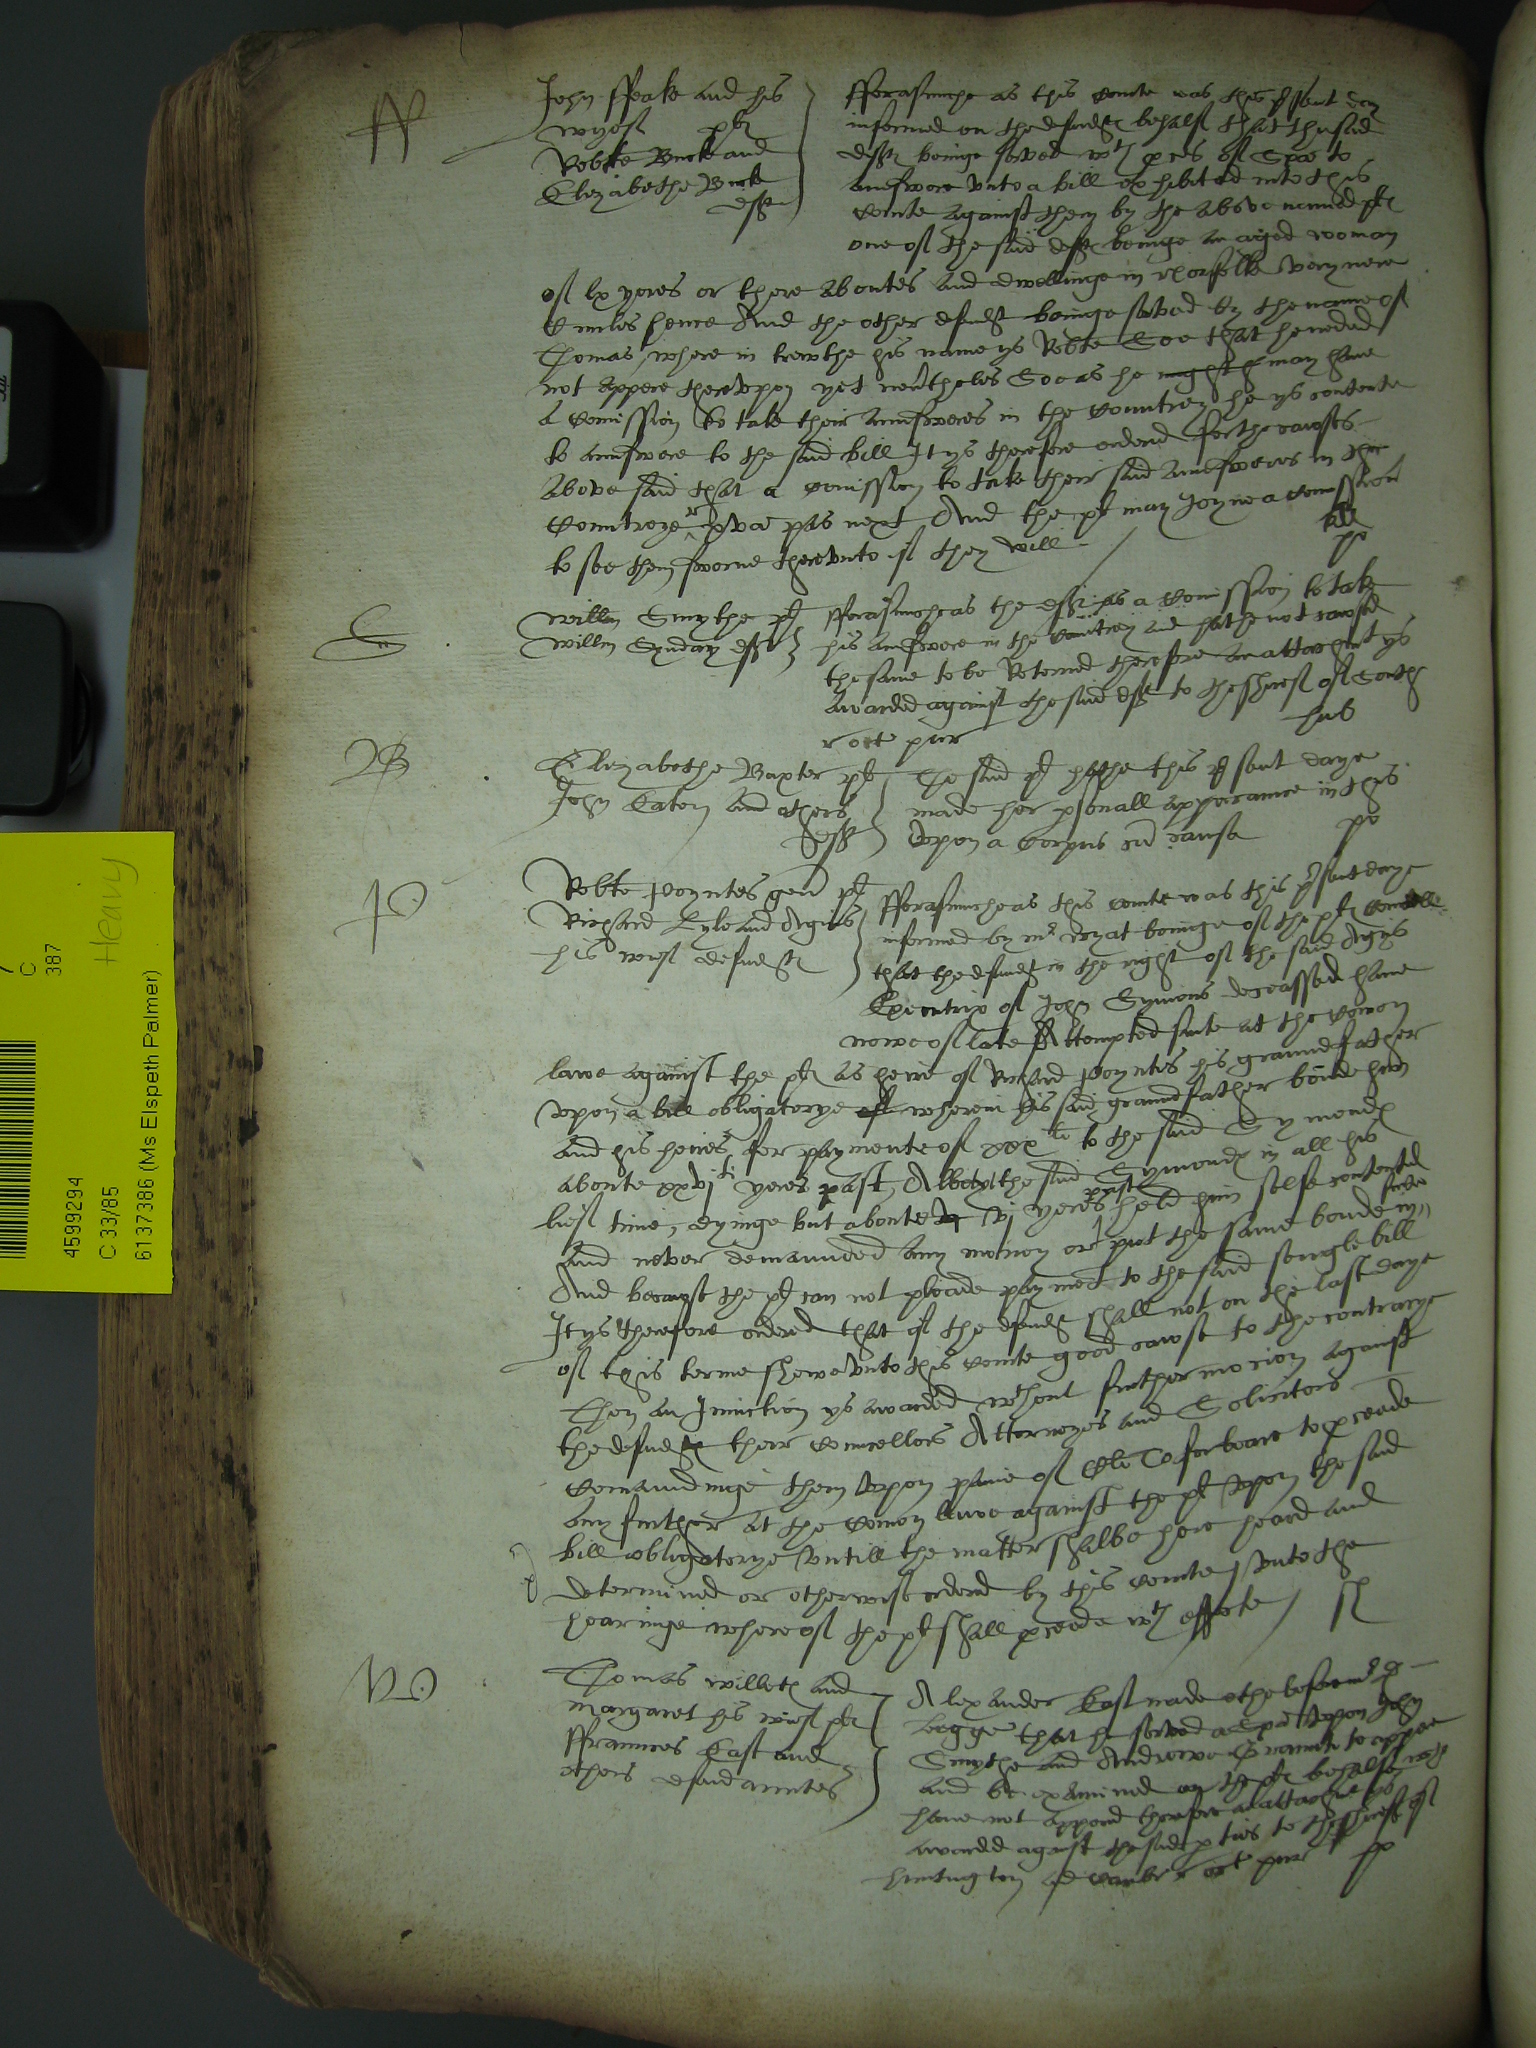 ff
John ffeake and his
wyves plts
Robte Buck and
Elyzabethe Buck
defts
fforasmuche as this courte was this psent day
informed on the defendts behalf that the said
defts beinge served wth pces of Spa to
aunswere unto a bill exhibited into this
courte against them by the above named plts
one of the said defts beinge an aged woman
of lx yeres or there aboutes and dwellinge in Norfolke very nere
C miles hence And the other defendt beinge served by the name of
Thomas, where in trewthe his name ys Robte Soe that he neded
not appere thereupon yet nevtheles Soe as he might h may have
a comission to take their aunsweres in the countrey he ys contente
to aunswere to the said bill It ys therefore ordered for the cawses
above said that a comission to take their said aunsweres in the
countreye r qua pas next And the plt may Joyne a comission
to see them sworne thereunto if they will
S
willm Smythe plt
willm Synday deft
fforasmoche as the deft has a comission to take
his aunswere in the countrey and hathe not cawsed
the same to be Retorned therefore an attachmt ys
awarded against the said deft to the shreif of South
r oct pur
B
Elyzabethe Baxter plt
John Eaton and others
defts
The said plt hathe this psent daye
made her psonall apperaunce in this
upon a corpus cu causa
P
Robte Poyntes gen plt
Richard Lyle and Agnes
his wief defendts
fforasmuche as this courte was this psent daye
informed by mr wyat beinge of the plts councell
that the defendts in the right of the said Agnys
Executrix of John Symons deceassed have
nowe of late Attempted suite at the comon
lawe against the plt as heire of Richard Poyntes his graundfather
upon a bill obligatorye wherein his said graundfather bounde him
and his heires for paymente of xxx li to the said Symonds
aboute xxvj ti yeres past, Albeyt the said Symonds in all his
lief time, dyinge but aboute vj yeres past held him selfe contented
And never demaunded any money or put the same bonde in suite
And because the plt can not pleade paymet to the said sengle bill
It ys therefore ordered that if the defendts shall not on the last daye
of this terme shewe unto this courte good cawse to the contrarye
Then an Iniunction ys awarded wthout further mocion against
the defendts their councellors Attorneyes and Solicitors
comaundinge them upon paine of to forbeare to pceade
any further at the comon lawe against the plt upon the said
bill obligatorye untill the matter shalbe here heard and
determined or otherwise ordered by this courte / unto the
hearinge whereof the plt shall pceade wth effecte
W
Thomas willets and
Margaret his wief plts
ffraunces East and
others defendauntes
Alexander East made othe before mr
Legge that he served a Spa upon John
Smythe and Andrewe to appere
and be examined on the plts behalfe wch
have not appered therefore an attachmt ys
awarded against the said pties to the shreif of
huntington and cambr r oct pur
4599294
C 33/85
6137386 (Ms Elspeth Palmer)
C
387
Heavy